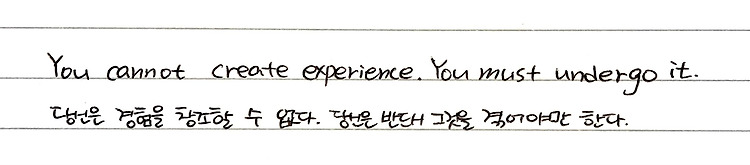 You cannot create experience. You must undergo it.
당신은 경험을 창조할 수 없다. 당신은 반드시 그것을 겪어야만 한다.